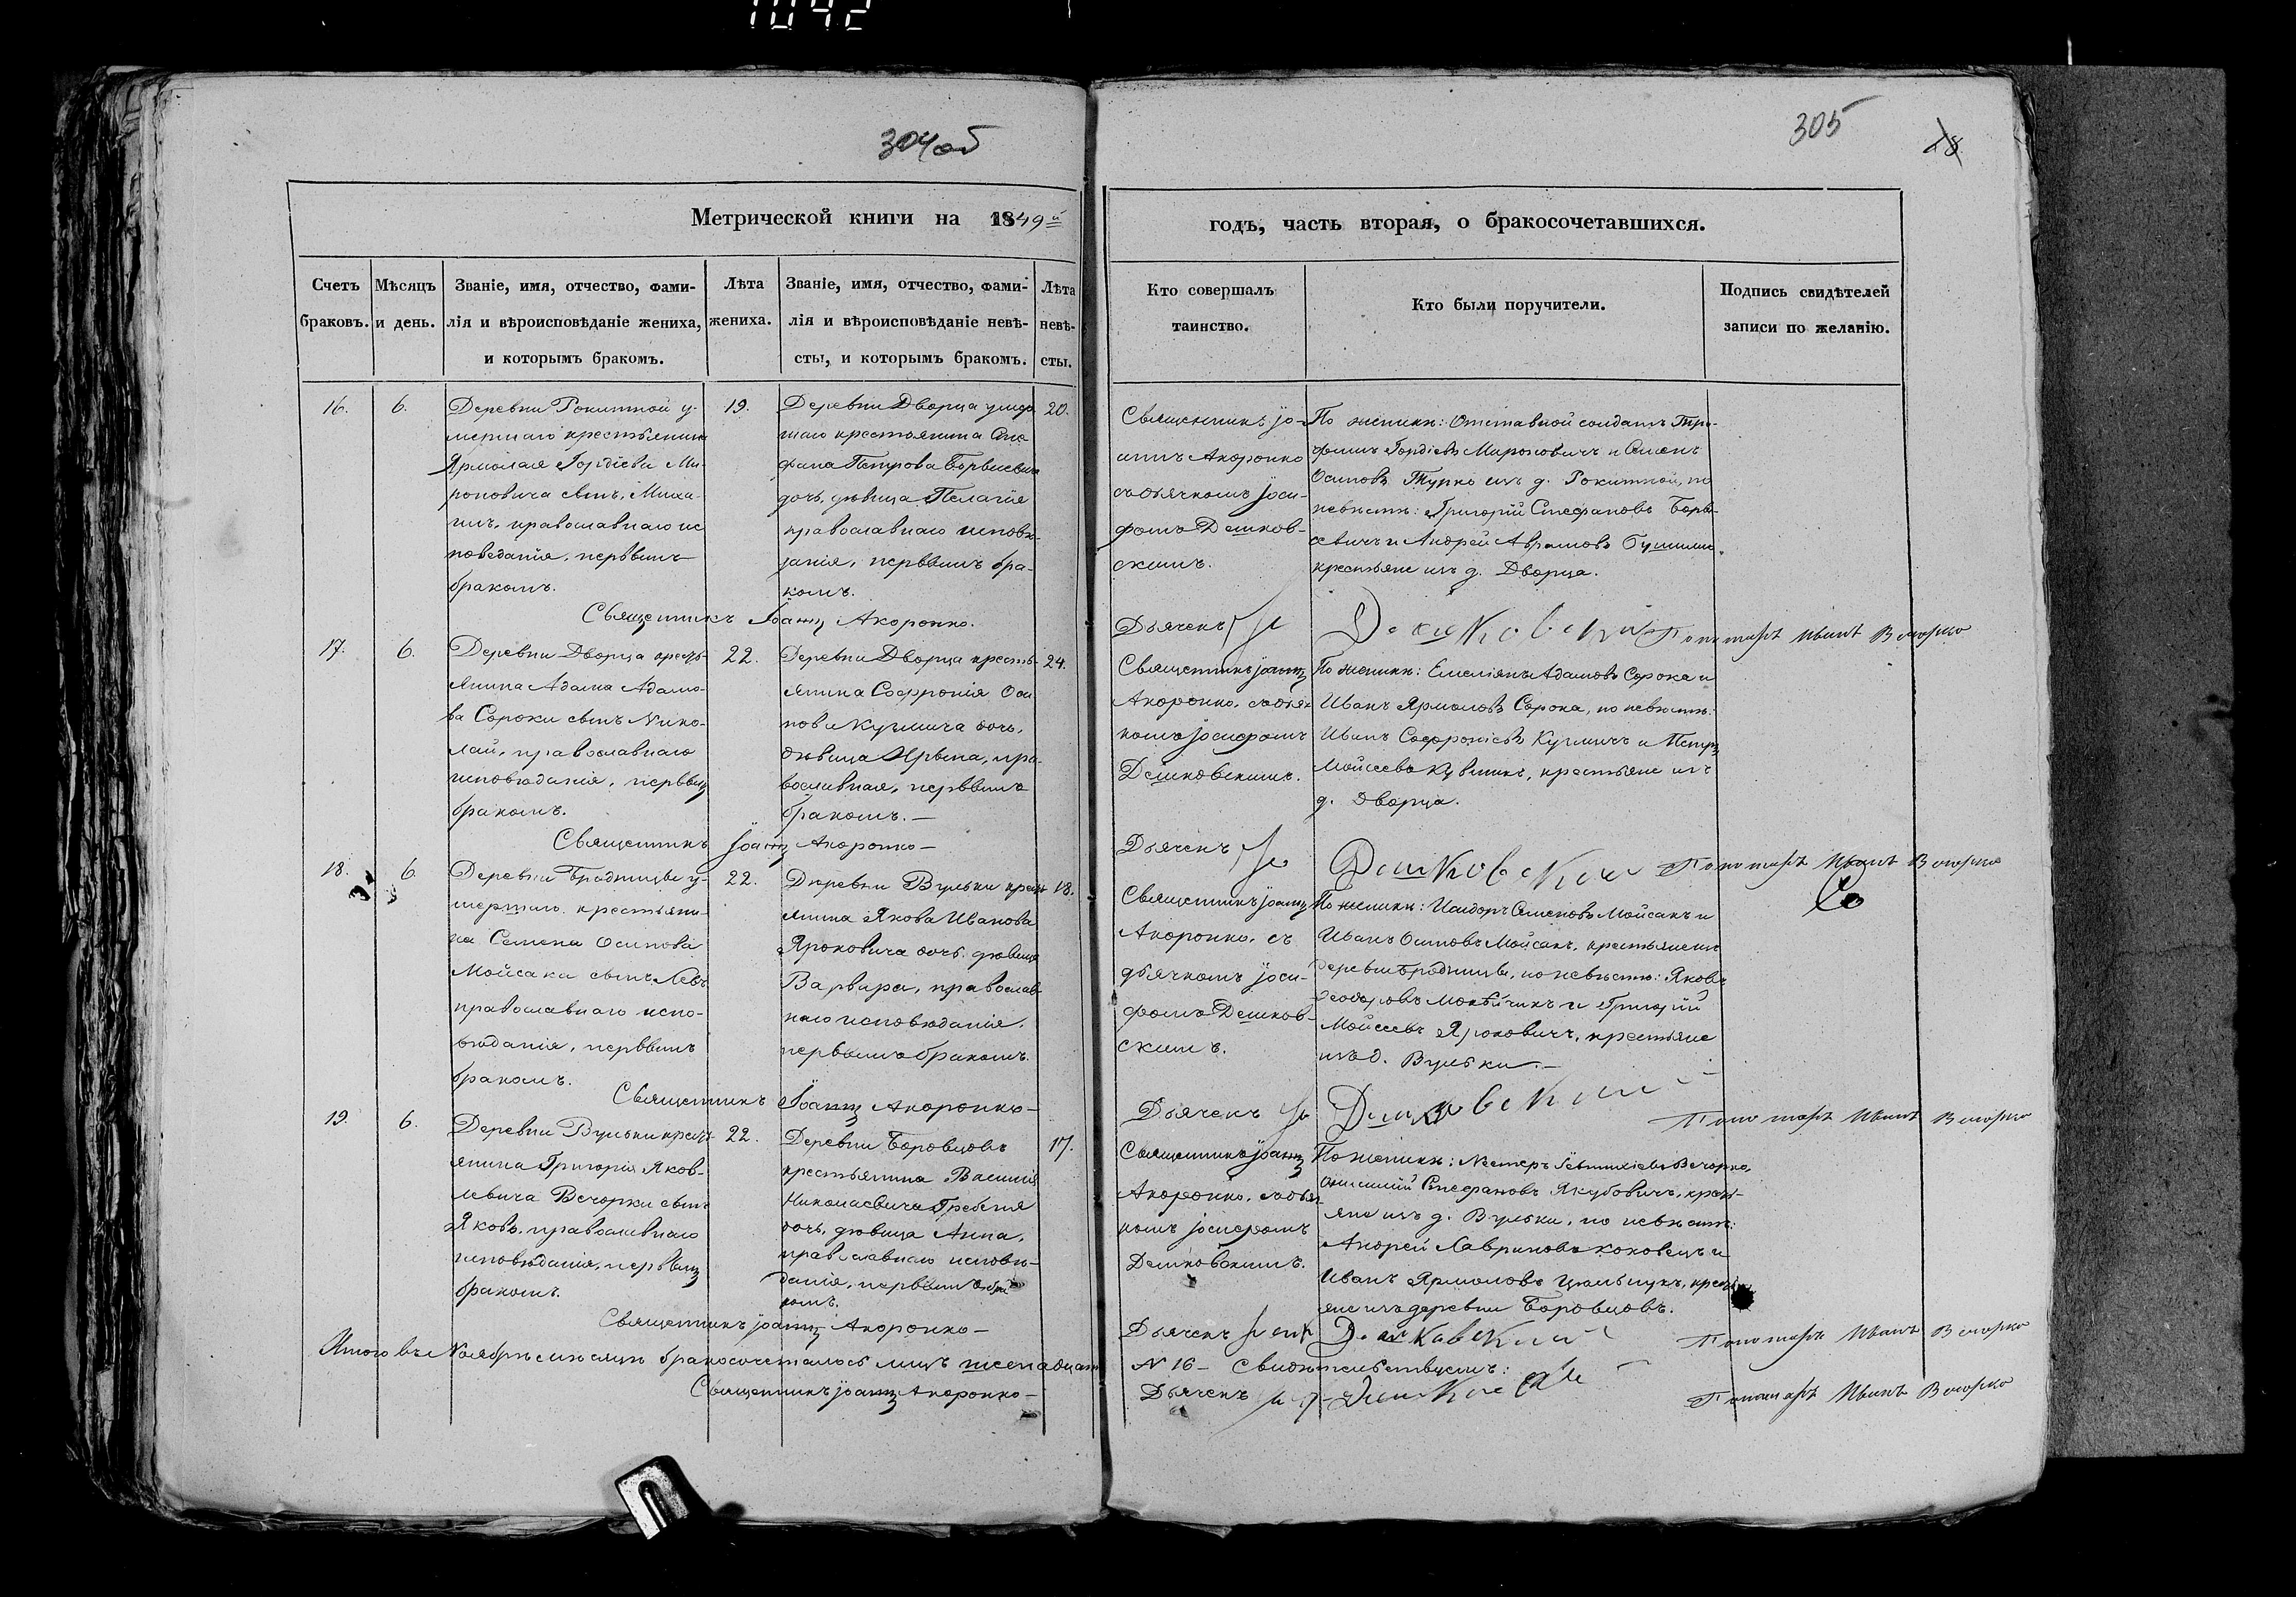 1042
304 об
305
Метрической книги на 1849й
годъ, часть вторая, о бракосочетавшихся.
Счетъ браковъ.
Мѣсяцъ и день.
Званіе, имя, отчество, фами-
лія и вѣроисповѣданіе жениха,
и которымъ бракомъ.
Лѣта
жениха.
Званіе, имя, отчество, фами-
лія и вѣроисповѣданіе невѣ-
сты, и которымъ бракомъ.
Лѣта
невѣ-
сты.
Кто совершалъ
таинство.
Кто были поручители.
Подпись свидѣтелей
записи по желанію.
16.
6.
Деревни Рокитной у-
мершаго крестьянина
Ярмолая Гордіева Ми-
роновича сынъ, Миха-
илъ, православнаго ис
поведанія, первымъ
бракомъ.
19.
Деревни Дворца умер
шаго крестьянина Сте
фана Петрова
дочь, дѣвица Пелагія
православнаго исповѣ-
данія, первымъ бра-
комъ.
20.
Священникъ Іоаннъ Акоронко.
Священникъ Іо-
аннъ Акоронко
съ дьячкомъ Іоси-
фомъ Дешков-
скимъ.
По женихѣ: Отставной солдатъ Тро-
фимъ Гордіевъ Мироновичъ и Семенъ
Осиповъ Турко изъ д. Рокитной, по
невѣстѣ: Григорій Стефановъ
и Андрей Аврамовъ
крестьяне изъ д. Дворца.
Дьячекъ Дешковскій
Пономарь Иванъ Вечорко
17.
6.
Деревни Дворца кресть-
янина Адама Адамо-
ва Сороки сынъ Нико-
лай, православнаго
исповѣданія, первымъ
бракомъ.
22.
Деревни Дворца кресть-
янина Софронія Оси
пова Кузмича дочь,
дѣвица Ирына, пра-
вославная, первымъ
бракомъ. —
24.
Священникъ Іоаннъ Акоронко —
Священникъ Іоаннъ
Акоронко, съ дьяч
комъ Іосифомъ
Дешковскимъ.
По женихѣ: Емеліянъ Адамовъ Сорока и
Иванъ Ярмоловъ Сорока, по невѣстѣ:
Иванъ Софроніевъ Кузмичъ и Петръ
Мойсеевъ крестьяне изъ
д. Дворца.
Дьячекъ Дешковскій
Пономарь Иванъ Вечорко
18.
6.
Деревни Бродницы у-
мершаго крестьяни-
на Семена Осипова
Мойсака сынъ Левъ
православнаго испо-
вѣданія, первымъ
бракомъ.
22.
Деревни Вульки кресть
янина Якова Иванова
Яроковича дочь дѣвица
Варвара, православ
наго исповѣданія,
первымъ бракомъ.
18.
Священникъ Іоаннъ Акоронко —
Священникъ Іоаннъ
Акоронко, съ
дьячкомъ Іоси-
фомъ Дешков-
скимъ.
По женихѣ: Исидоръ Семеновъ Мойсакъ и
Иванъ Осиповъ Мойсакъ, крестьяне изъ
деревни Бродницы, по невѣстѣ: Яковъ
Ѳеодоровъ и Григорій
Мойсеевъ Яроковичъ, крестьяне
изъ д. Вульки. —
Дьячекъ Дешковскій
Пономарь Иванъ Вечорко
19.
6.
Деревни Вульки кресть-
янина Григорія Яков-
левича Вечорки сынъ
Яковъ, православнаго
исповѣданія, первымъ
бракомъ.
22.
Деревни Боровцовъ
крестьянина Василія
Николаевича Гребеня
дочь, дѣвица Анна,
православнаго исповѣ-
данія, первымъ бра
комъ.
17.
Священникъ Іоаннъ Акоронко —
Священникъ Іоаннъ
Акоронко, съ дьяч
комъ Іосифомъ
Дешковскимъ.
По женихѣ: Нестеръ Вечорко,
Стефановъ Якубовичъ, кресть-
яне изъ д. Вульки, по невѣстѣ:
Андрей Лавриновъ Коковецъ и
Иванъ Ярмоловъ кресть
яне изъ деревни Боровцовъ.
Дьячекъ Дешковскій
Пономарь Иванъ Вечорко
Итого въ Ноябрѣ мѣсяцѣ бракосочеталось лицъ шестнадцать
N 16 — Свидѣтельствуемъ:
Священникъ Іоаннъ Акоронко —
Дьячекъ Дешковскій
Пономарь Иванъ Вечорко